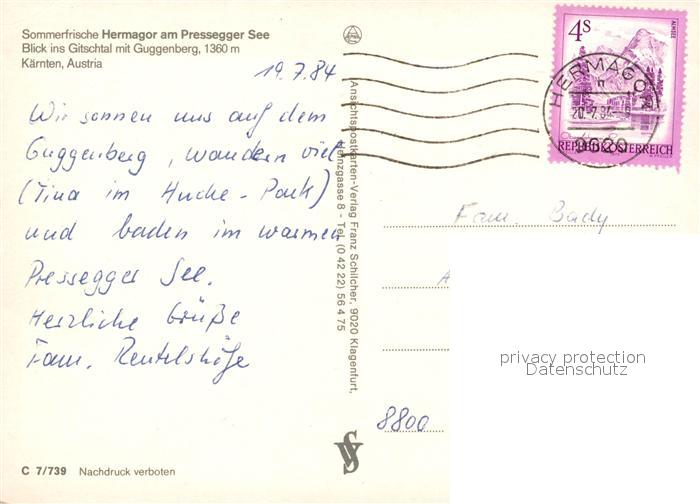 Sommerfrische Hermagor am Pressegger See
Blick ins Gitschtal mit Guggenberg, 1360 m
Kärnten, Austria
19.7.84
Wir sonnen uns auf dem
Guggenberg, wandern viel
(Tina im Hucke-Pack)
und baden im warmen
Pressegger See.
Herzliche Grüße
Fam.
C 7/739 Nachdruck verboten
Ansichtspostkarten-Verlag Franz Schilcher, 9020 Klagenfurt,
Heinzgasse 8 - Tel. (0 42 22) 56 4 75
4S
ALMSEE
HERMAGOR
20.-7.84
9620
REPUBLIK ÖSTERREICH
Fam. Bady
A
8800
privacy protection
Datenschutz